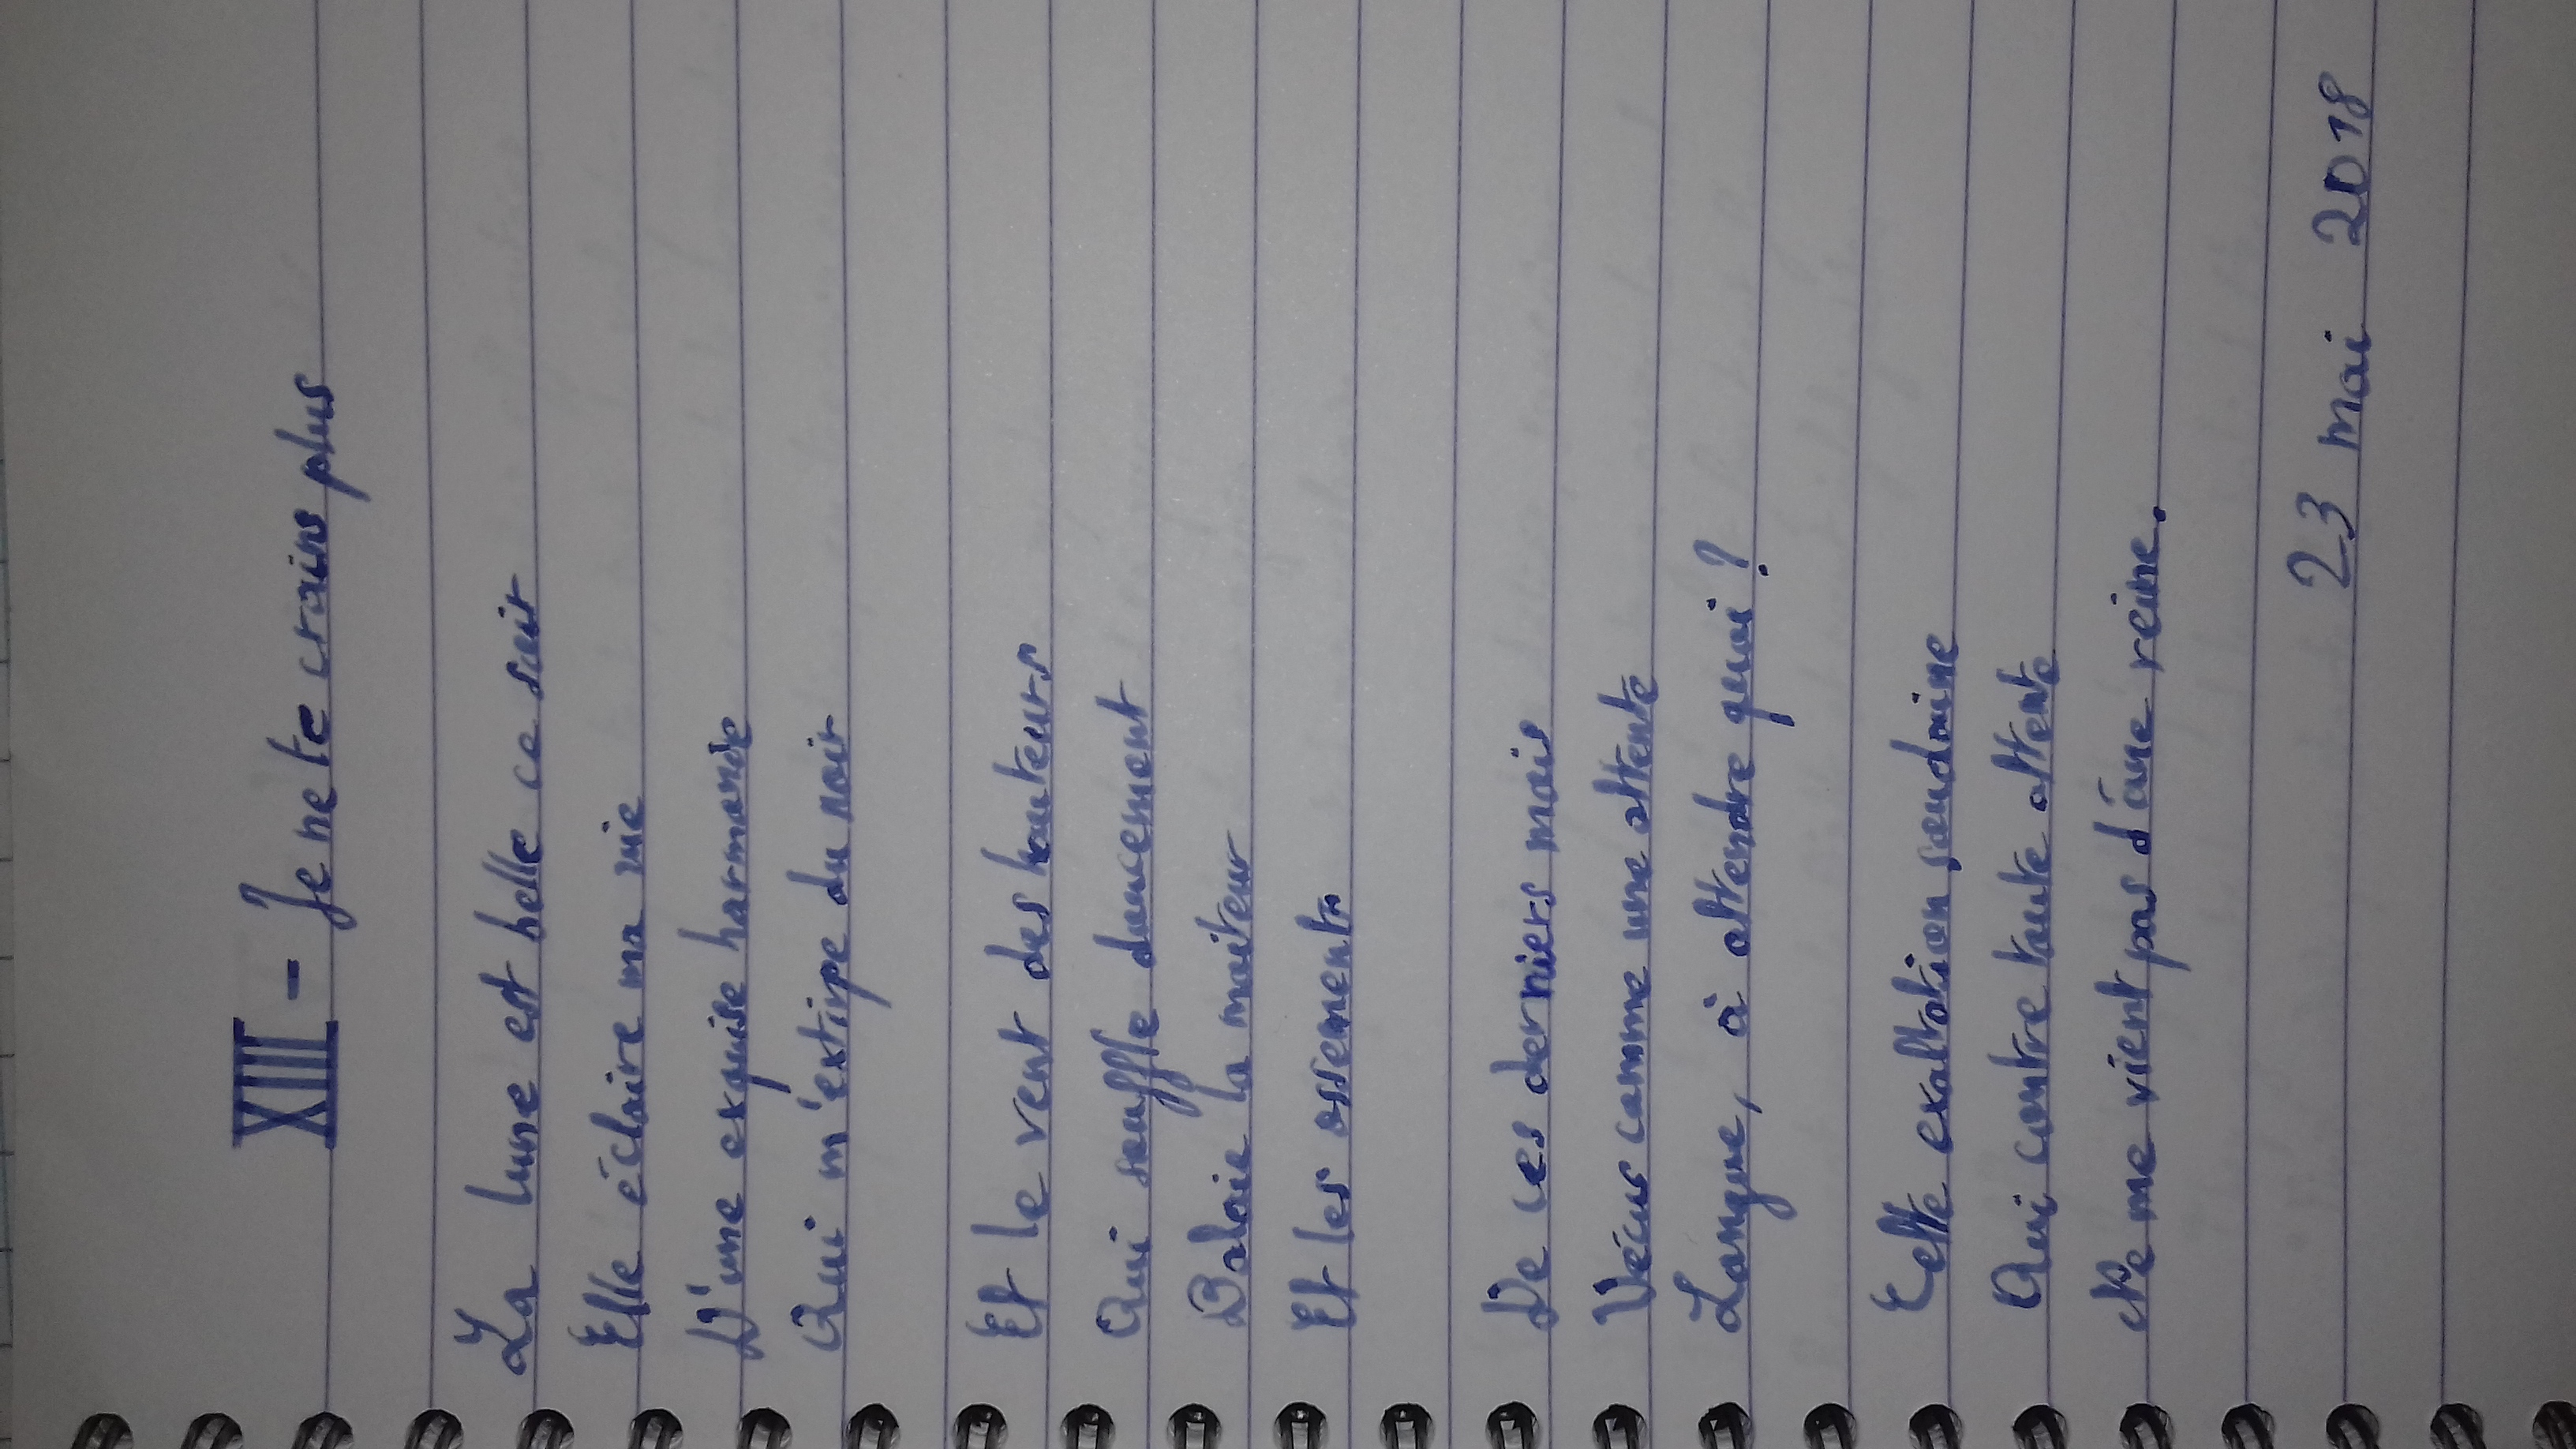 XIII - Je ne te crains plus
La lune est belle ce soir
Elle éclaire ma vie
D'une exquise harmonie
Qui m'extirpe du noir
Et le vent des hauteurs
Qui souffle doucement
Balaie la moiteur
Et les ossements
De ces derniers mois
Vécus comme une attente
Longue, à attendre quoi ?
Cette exaltation soudaine
Qui contre toute attente
Ne me vient pas d'une reine.
23 mai 2018